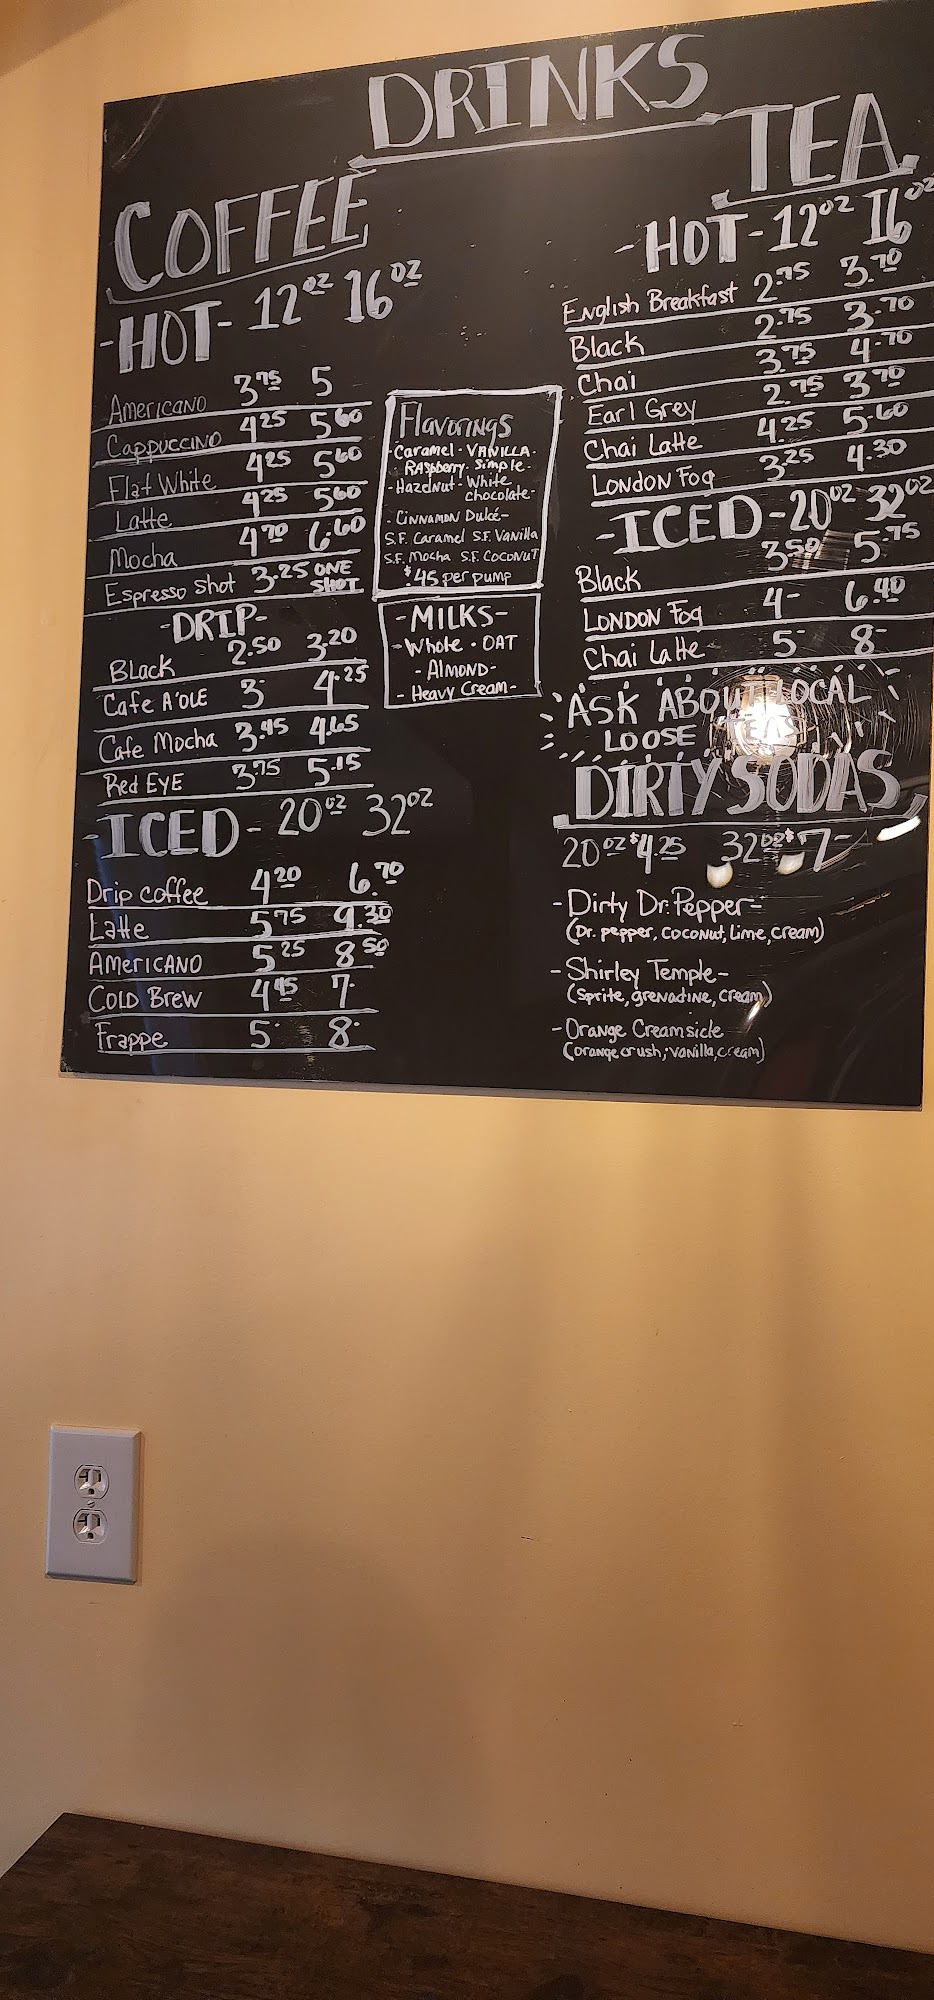 DRINKS
COFFEE
-HOT- 12oz 16oz
Americano 3.75 5
Cappuccino 4.25 5.60
Flat White 4.25 5.60
Latte 4.25 5.60
Mocha 4.70 6.60
Espresso Shot 3.25 ONE SHOT
-DRIP-
Black 2.50 3.20
Cafe A'OLE 3 4.25
Cafe Mocha 3.45 4.65
Red EYE 3.75 5.15
-ICED- 20oz 32oz
Drip coffee 4.20 6.70
Latte 5.75 9.30
AMERICANO 5.25 8.50
COLD BREW 4.45 7
Frappe 5 8
Flavorings
Caramel - VANILLA -
Raspberry - Simple
- Hazelnut - White
chocolate -
- CINNAMON Dulcé -
S.F. Caramel S.F. Vanilla
S.F. Mocha S.F. COCONUT
$.45 per pump
-MILKS-
- Whole - OAT
- ALMOND -
- Heavy Cream -
TEA
-HOT- 12oz 16oz
English Breakfast 2.75 3.70
Black 2.75 3.70
Chai 3.75 4.70
Earl Grey 2.75 3.70
Chai Latte 4.25 5.60
LONDON FOG 3.25 4.30
-ICED- 20oz 32oz
Black 3.50 5.75
LONDON FOG 4- 6.40
Chai Latte 5- 8-
ASK ABOUT LOCAL
LOOSE TEAS
DIRTY SODAS
20oz $4.25 32oz $7-
- Dirty Dr. Pepper -
(Dr. pepper, coconut, lime, cream)
- Shirley Temple -
(Sprite, grenadine, cream)
- Orange Creamsicle
(orange crush, vanilla, cream)